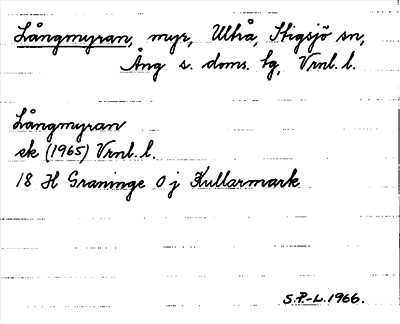 Långmyran, myr, Utrå, Stigsjö sn,
Ång. s. doms. lg, Vrnl. l.
Långmyran
ek (1965) Vrnl. l.
18 H Graninge 0 j Kullarmark
S.P.-L. 1966.